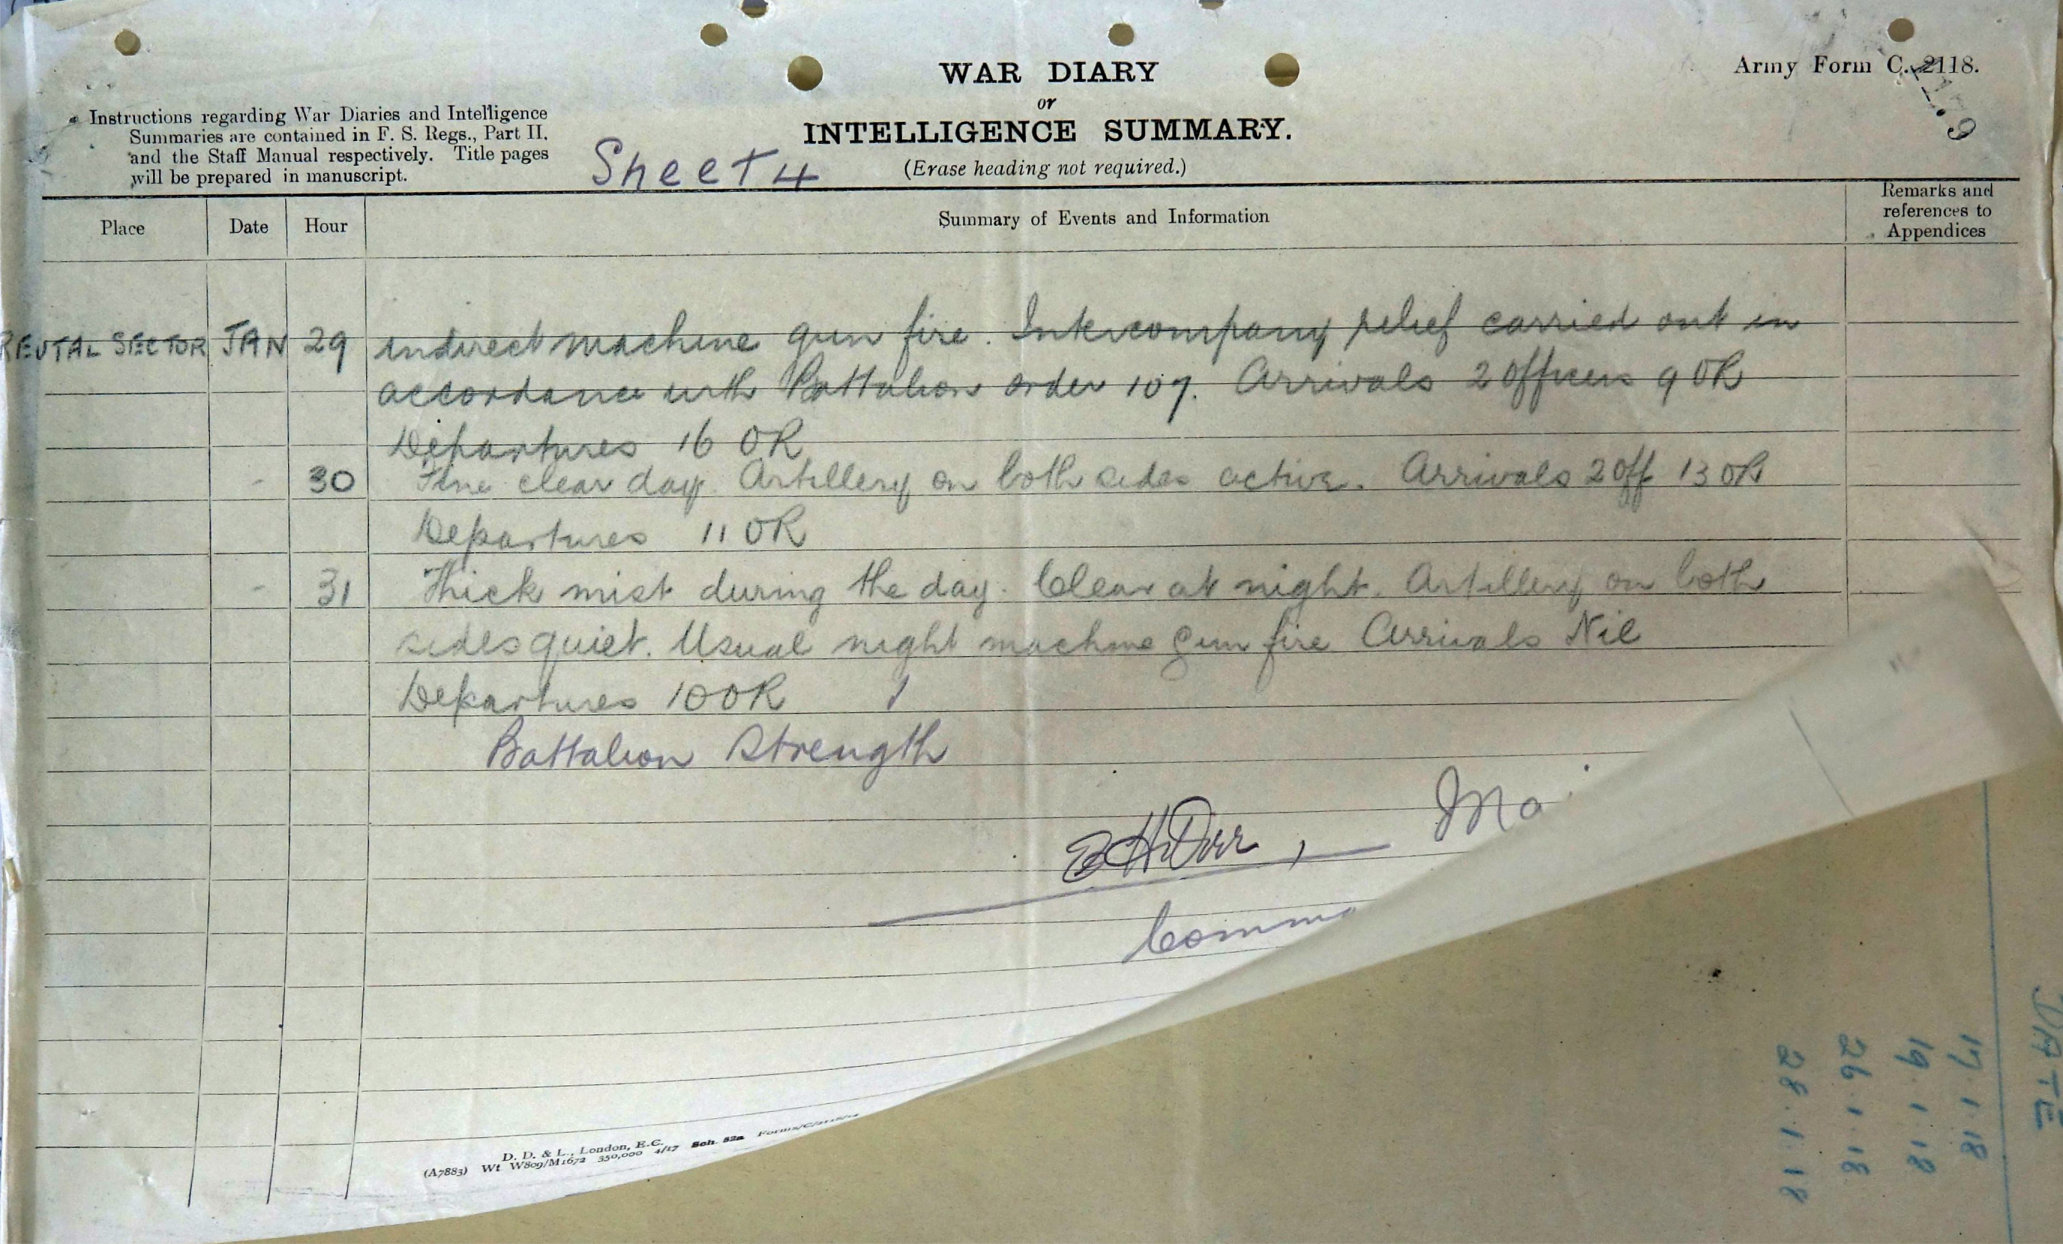 WAR DIARY
or
INTELLIGENCE SUMMARY.
(Erase heading not required.)
Army Form C. 2118.
Instructions regarding War Diaries and Intelligence
Summaries are contained in F. S. Regs., Part II.
and the Staff Manual respectively. Title pages
will be prepared in manuscript.
Sheet 4
Place Date Hour Summary of Events and Information Remarks and
references to
Appendices
SECTOR JAN 29 indirect machine gun fire. Intercompany relief carried out in
accordance with Battalion order 107. Arrivals 2 Officers 9 OR
Departures 16 OR
- 30 Fine clear day. Artillery on both sides active. Arrivals 2 Off 13 OR
Departures 11 OR
- 31 Thick mist during the day. Clear at night. Artillery on both
sides quiet. Usual night machine gun fire. Arrivals Nil
Departures 10 OR
Battalion Strength
D. D. & L., London, E.C.
(A7883) Wt W809/M1672 350,000 4/17 Sch. 52a
DATE
17.1.18
19.1.18
26.1.18
28.1.18